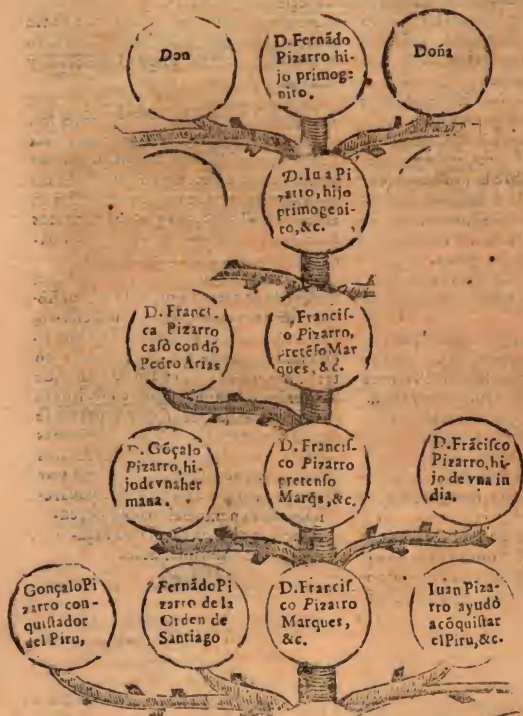 Don
D. Fernãdo
Pizarro hi-
jo primoge
nito.
Doña
D. Iu a Pi
zarro, hijo
primogeni-
to, &c.
D. Francis-
ca Pizarro
casò con dõ
Pedro Arias
Francis-
o Pizarro,
pretẽso Mar
ques, &c.
D. Gõçalo
Pizarro, hi-
jo de vna her
mana.
D. Francis-
co Pizarro
pretenso
Marq̃s, &c.
D. Frãcisco
Pizarro, hi-
jo de vna in
dia.
Gonçalo Pi
zarro con-
quistador
del Piru,
Fernãdo Pi
zarro de la
Orden de
Santiago
D. Francis-
co Pizarro
Marques,
&c.
Iuan Piza-
rro ayudò
a cõquistar
el Piru, &c.